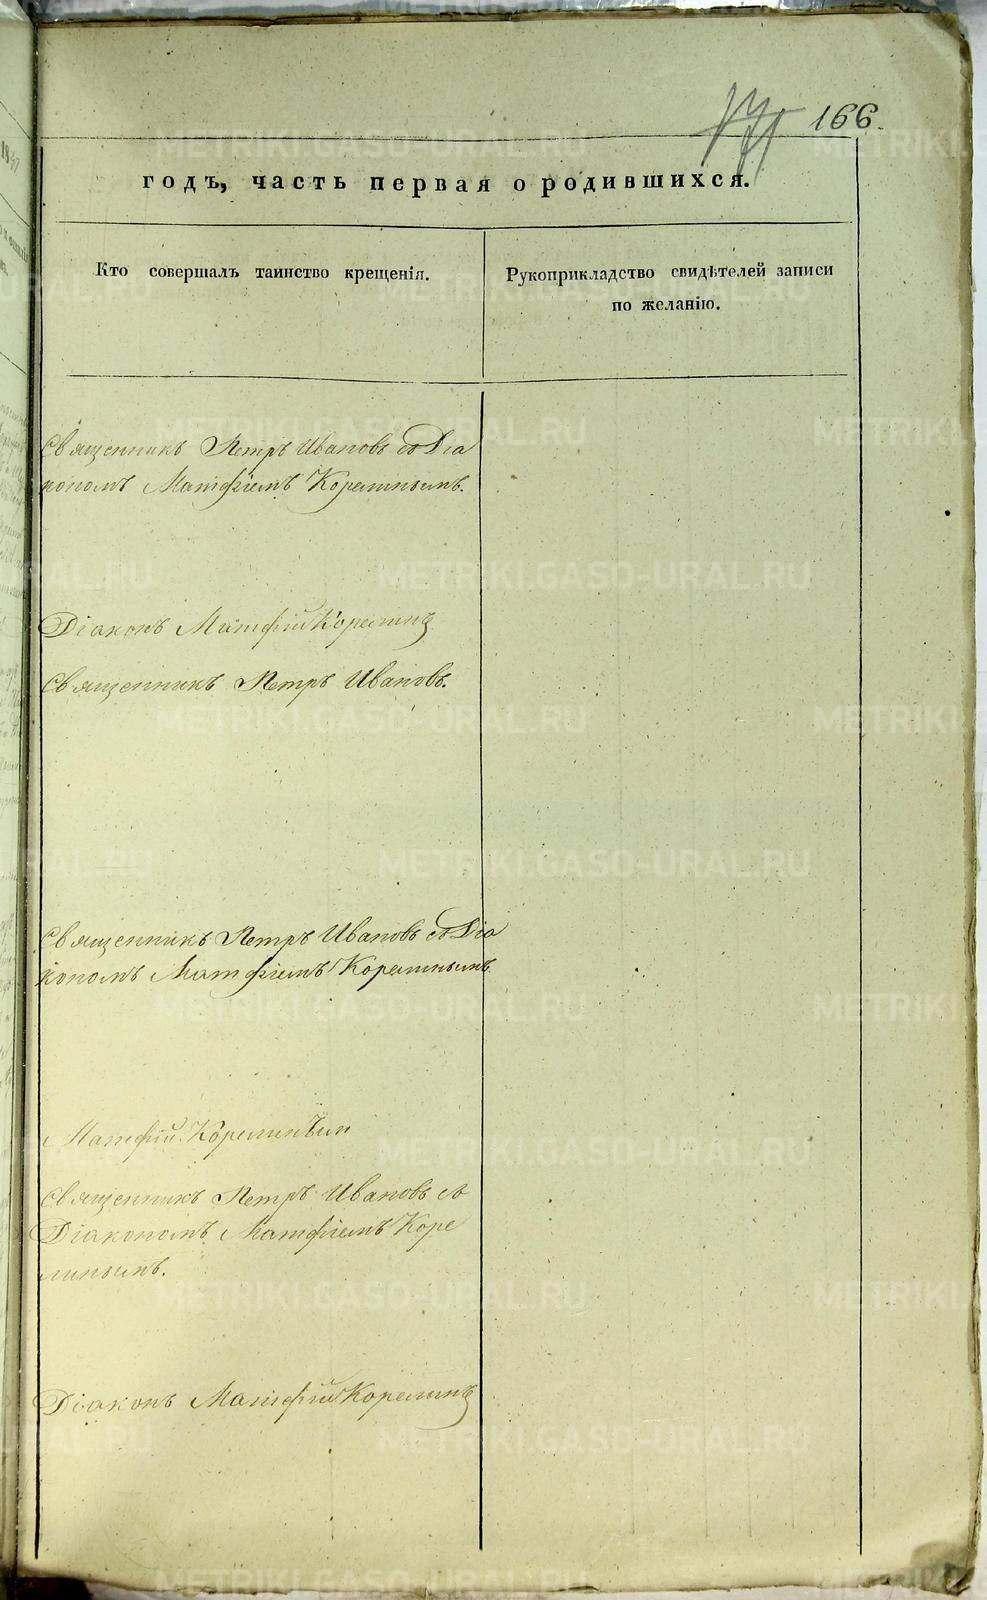 166.
годъ, часть первая о родившихся.
Кто совершалъ таинство крещенія.
Рукоприкладство свидѣтелей записи
по желанію.
Священникъ Петръ Ивановъ съ Діа
кономъ Матфіемъ Корелинымъ.
Діаконъ Матфій Корелинъ
Священникъ Петръ Ивановъ.
Священникъ Петръ Ивановъ съ Діа
кономъ Матфіемъ Корелинымъ
Матфій Корелинъ
Священникъ Петръ Ивановъ съ
Діакономъ Матфіемъ Коре
линымъ.
Діаконъ Матфій Корелинъ
METRIKI.GASO-URAL.RU